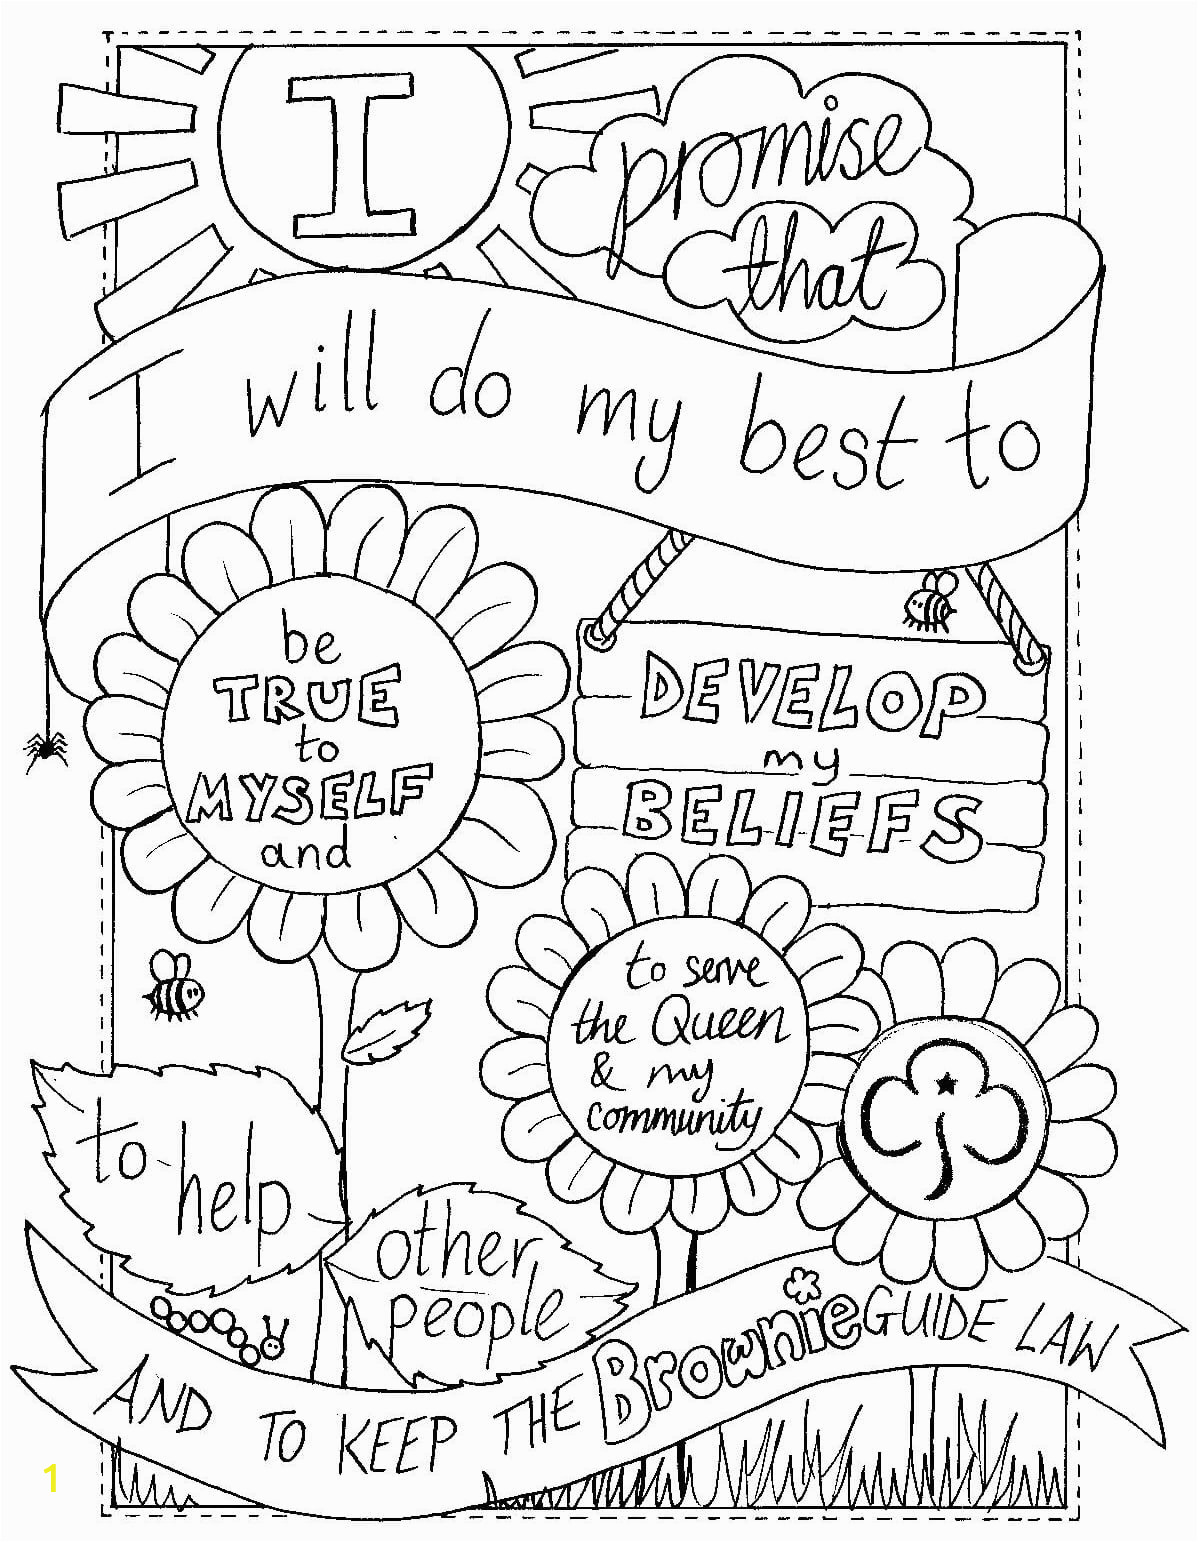 I
promise
that
I will do my best to
be
TRUE
to
MYSELF
and
DEVELOP
my
BELIEFS
to serve
the Queen
& my
community
to help
other
people
AND TO KEEP THE Brownie GUIDE LAW
1